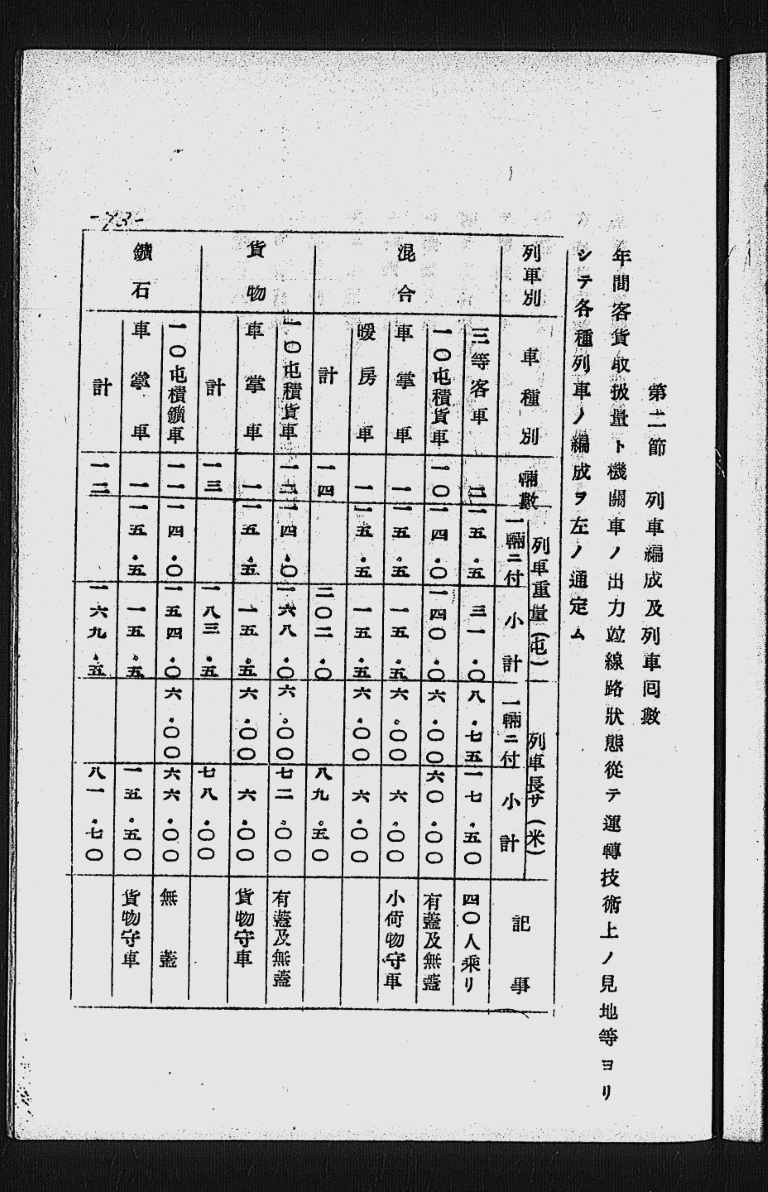 第二節　列車編成及列車囘數
年間客貨取扱量ト機關車ノ出力竝線路狀態從テ運轉技術上ノ見地等ヨリ
シテ各種列車ノ編成ヲ左ノ通定ム
列車別　車種別　輛數　列車重量（屯）　一輛ニ付　小計　列車長サ（米）　一輛ニ付　小計　記事
混合　三等客車　二　一五・五　三一・〇　八・七五　一七・五〇　四〇人乘リ
一〇屯積貨車　一〇　一四・〇　一四〇・〇　六・〇〇　六〇・〇〇　有蓋及無蓋
車掌車　一　一五・五　一五・五　六・〇〇　六・〇〇　小荷物守車
暖房車　一　一五・五　一五・五　六・〇〇　六・〇〇
計　一四　二〇二・〇　八九・五〇
貨物　一〇屯積貨車　一二　一四・〇　一六八・〇　六・〇〇　七二・〇〇　有蓋及無蓋
車掌車　一　一五・五　一五・五　六・〇〇　六・〇〇　貨物守車
計　一三　一八三・五　七八・〇〇
鑛石　一〇屯積鑛車　一一　一四・〇　一五四・〇　六・〇〇　六六・〇〇　無蓋
車掌車　一　一五・五　一五・五　一五・五〇　貨物守車
計　一二　一六九・五　八一・七〇
-73-